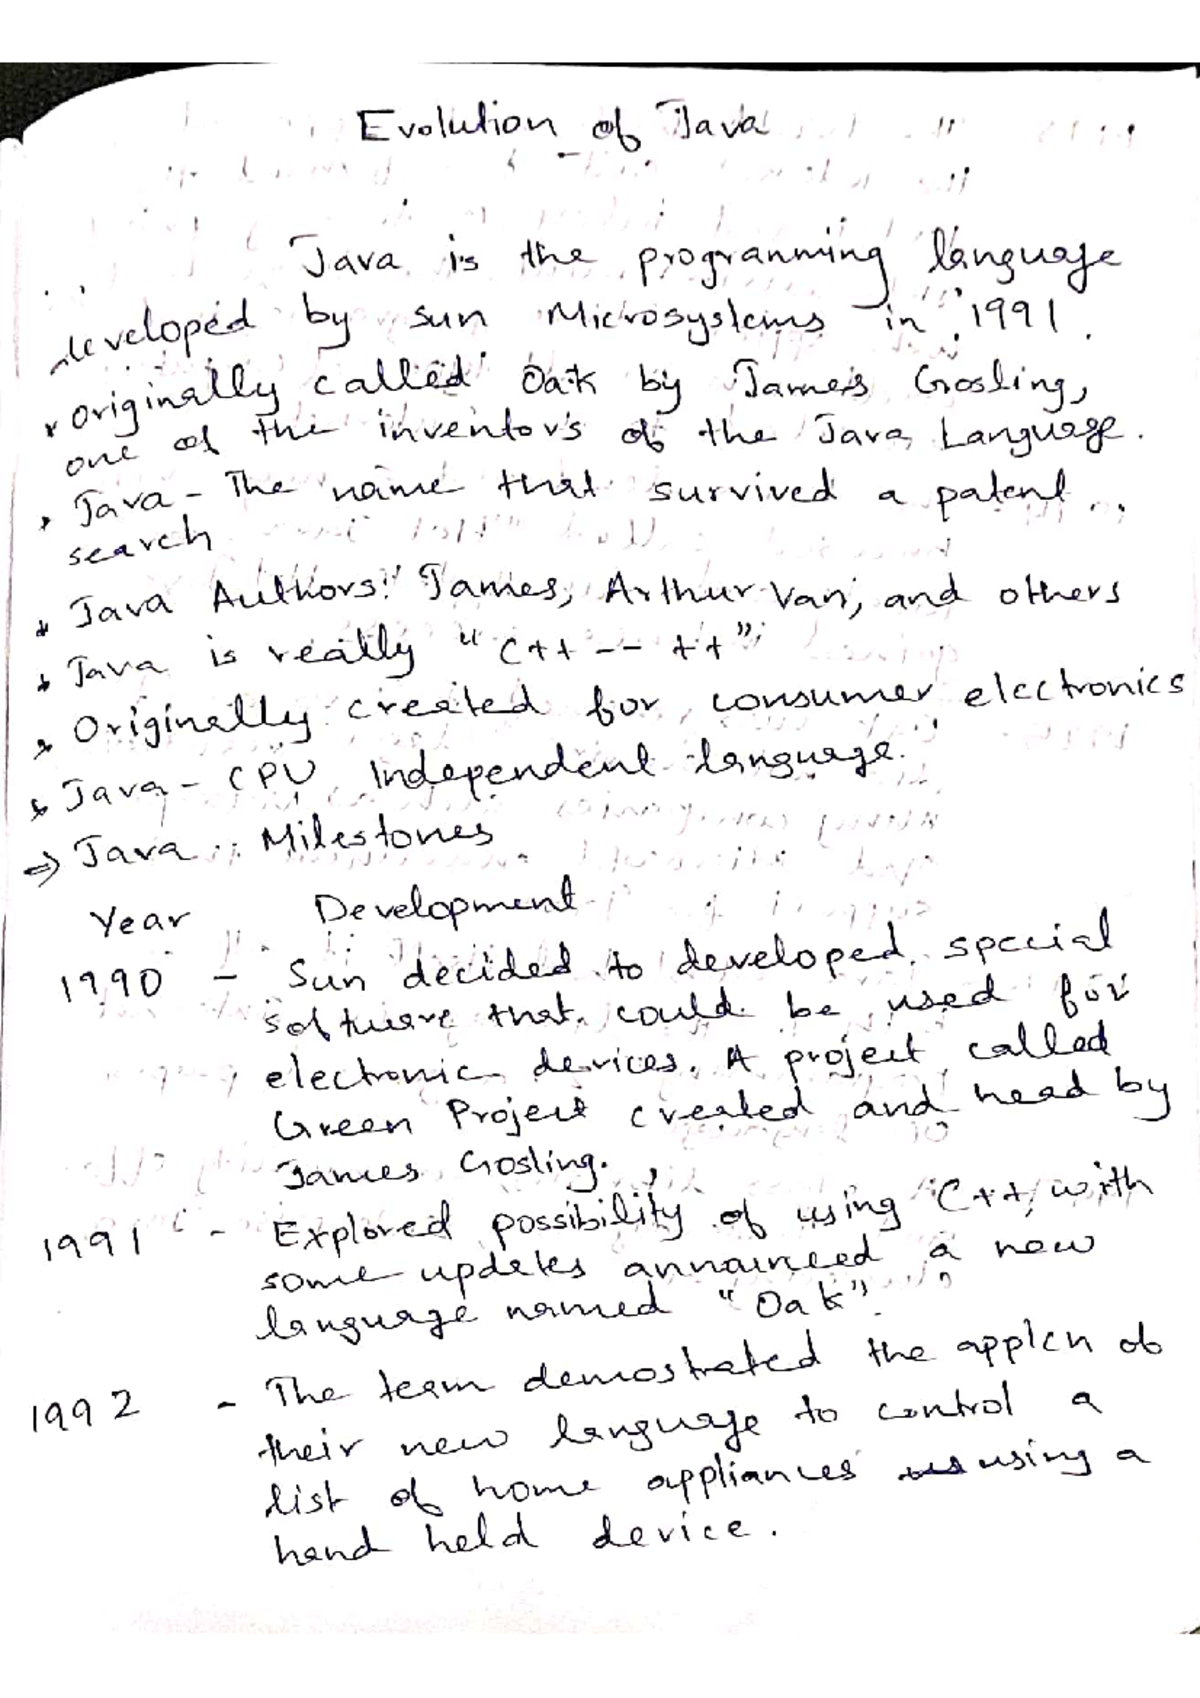 Evolution of Java
Java is the programming language
developed by sun Microsystems in 1991.
* Originally called Oak by James Gosling,
one of the inventors of the Java Language.
* Java - The name that survived a patent
search
* Java Authors: James, Arthur Van, and others
* Java is really "C++ -- ++"
* Originally created for consumer electronics
* Java - CPU Independent language.
⇒ Java Milestones
Year Development
1990 - Sun decided to developed special
software that could be used for
electronic devices. A project called
Green Project created and head by
James Gosling.
1991 - Explored possibility of using C++, with
some updates annainced a new
language named "Oak".
1992 - The team demostrated the applcn of
their new language to control a
list of home appliances using a
hand held device.